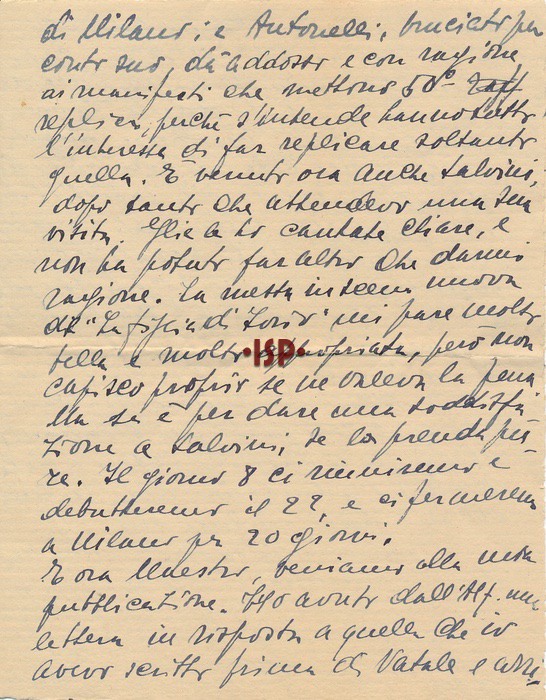 di Milano; e Antonelli, bruciato per
conto suo, dà addosso e con ragione
ai manifesti che mettono 50ª
replica, perchè s'intende hanno tutto
l'interesse di far replicare soltanto
quella. È venuto ora anche Salvini,
dopo tanto che attendevo una sua
visita. Glie le ho cantate chiare, e
non ha potuto far altro che darmi
ragione. La messa in scena nuova
de "La figlia di Iorio" mi pare molto
bella e molto appropriata, però non
capisco proprio se ne valeva la pena
Ma se è per dare una soddisfa
zione a Salvini, se la prenda pu
re. Il giorno 8 ci riuniremo e
debutteremo il 22, e ci fermeremo
a Milano per 20 giorni.
E ora Maestro, veniamo alla mia
pubblicazione. Ho avuto dall'Alf. una
lettera in risposta a quella che io
avevo scritto prima di Natale e
·ISP·